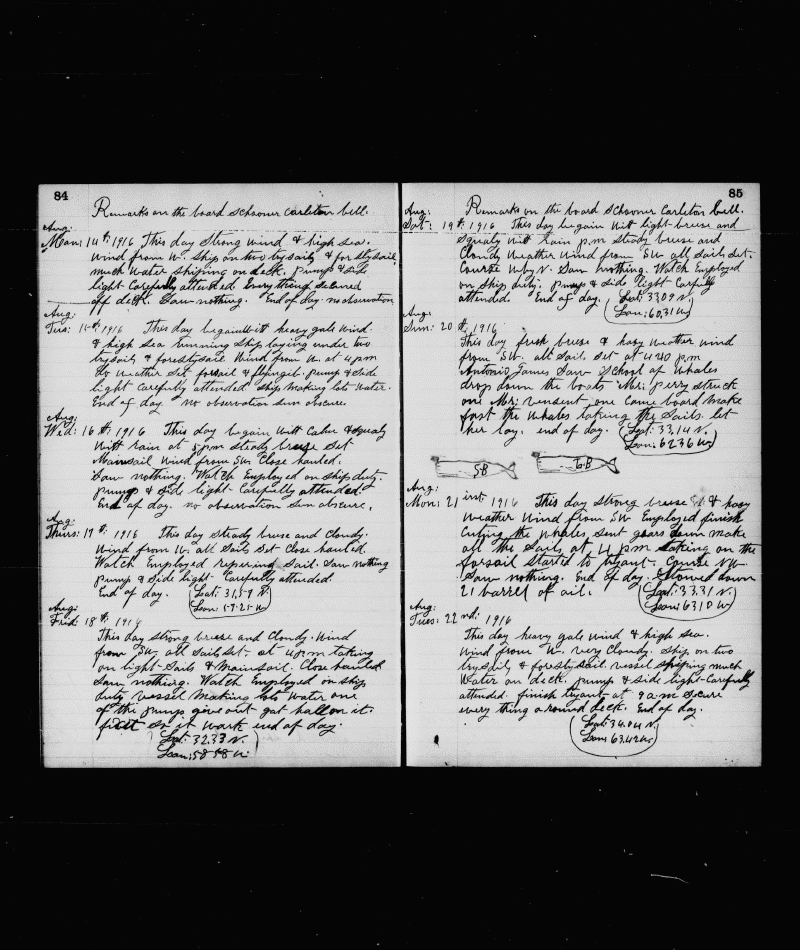 84
Remarks on the board Schooner Carleton bell.
Aug:
Mon: 14th: 1916 This day Strong Wind & high sea.
Wind from W. Ship on two trysails & forstysail,
much Water shiping on deck. pump & side
light Carefully attended. Everything secured
off deck Saw nothing. End of day. no observation
Aug:
Tues: 15th: 1916 This day began Witt heavy gale Wind
& high sea running Ship laying under two
trysails & forstysail. Wind from W. at 4 pm
the Weather Set forsail & flyingib. pump & side
light Carefully attended Ship Making lots Water.
End of day no observation sun obscure.
Aug;
Wed: 16th, 1916 This day began Witt Calm & squaly
Witt rain at 5 pm Steady breese Set
Mainsail Wind from SW. Close hauled.
Saw nothing. Watch Employed on Ship duty.
pump & side light Carefully attended.
End of day. no observation Sun obscure.
Aug:
Thurs: 17th: 1916 This day Steady breese and Cloudy.
Wind from W. all Sails Set Close hauled.
Watch Employed repering Sail. Saw nothing
pump & Side light Carefully attended.
End of day.
Lat: 31,59 N.
Lon: 59.25 W
Aug:
Frid: 18th: 1916
This day strong breese and Cloudy. Wind
from SW. all Sails Set at 4 pm taking
on light Sails & Mainsail. Close hauled
Saw nothing. Watch Employed on ship
duty vessel Making lots Water one
of the pump give out gat hall on it
fixit so it work end of day.
Lat: 32.33 N.
Lon: 58 58 W.
85
Remarks on the board Schooner Carleton bell.
Aug:
Sat: 19th: 1916 This day began Witt light breese and
Squaly Witt rain p.m Steady breese and
Cloudy Weather Wind from SW all Sails Set.
Course W by N. Saw nothing. Watch Employed
on Ship duty. pump & side light Carfuly
attended End of day.
Lat: 33.09 N
Lon: 60,31 W
Aug:
Sun: 20th, 1916
This day fresh breese & hasy Weather Wind
from SW. all Sail Set at 4 30 p.m
Antonio Games Saw School of Whales
drop down the boats Mr: perry Struck
one Mr: vensent one Came board make
fast the Whales taking the Sails let
her lay. end of day.
Lat: 33.14 N.
Lon: 62 36 W.
58
T.B
Aug:
Mon: 21 inst 1916 This day strong breese & hasy
Weather Wind from SW Employed finish
Cuting the Whales Sent gears down make
all the Sails at 4 pm taking on the
forsail Started to tryout. Course NW
Saw nothing. End of day. Stowed down
21 barrel of oil.
Lat: 33.31 N.
Lon: 63 10 W
Aug:
Tues: 22 nd: 1916
This day heavy gale Wind & high sea.
Wind from W. very Cloudy. Ship on two
trysails & forstysail vessel shiping much
Water on deck. pump & side light Carefully
attended. finish tryout at 9 a.m Secure
every thing around deck. End of day.
Lat: 34.04 N.
Lon: 63.42 W.